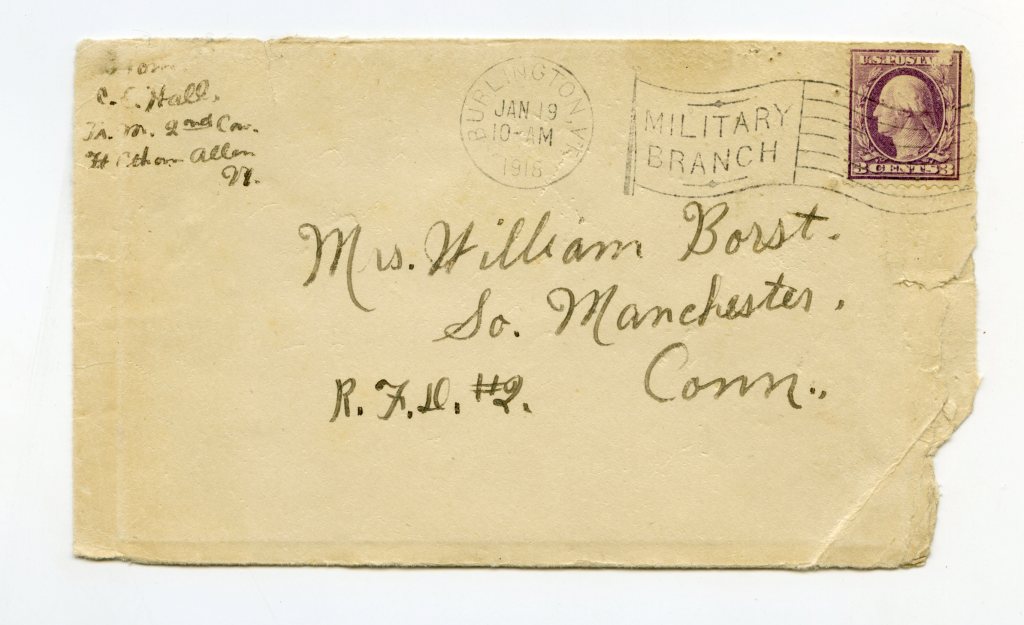 From
C. C. Hall,
Tr. M. 2nd Cav.
Ft Ethan Allen
Vt.
BURLINGTON, VT.
JAN 19
10-AM
1918
MILITARY
BRANCH
U.S. POSTAGE
3 CENTS 3
Mrs. William Borst.
So. Manchester,
Conn.,
R. F. D. #2.